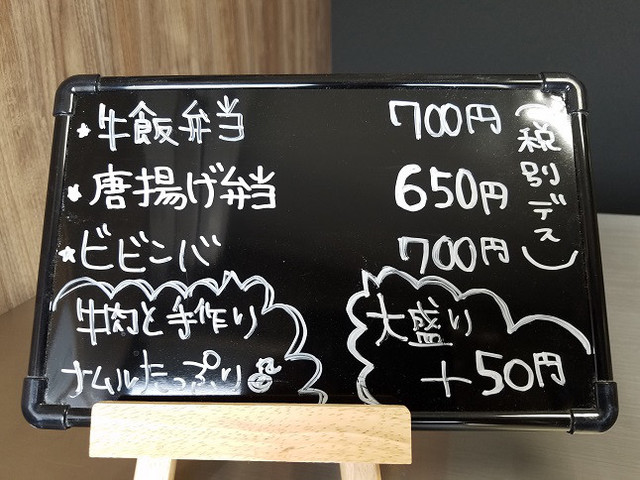 ★牛飯弁当 700円
★唐揚げ弁当 650円
★ビビンバ 700円
(税別デス)
牛肉と手作り
ナムルたっぷり♫
大盛り
+50円